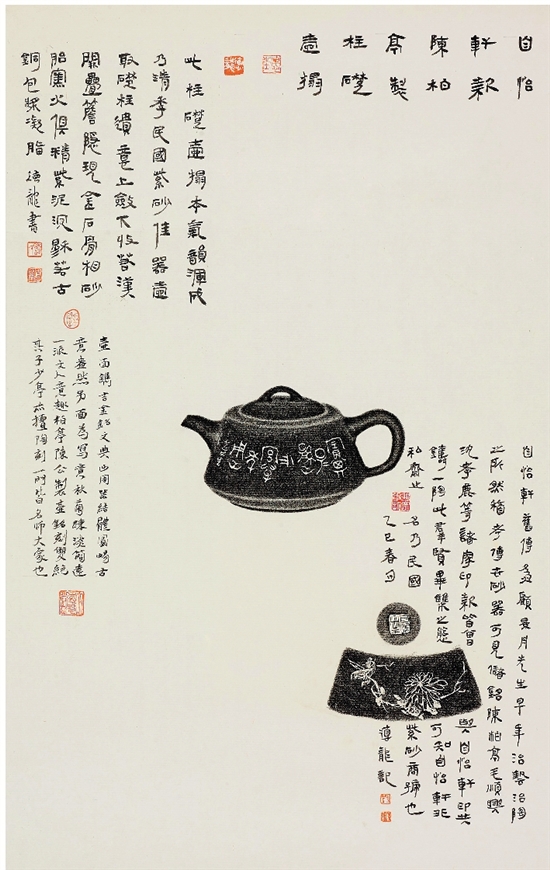 自怡
軒款
陳柏
亭製
柱礎
壺搨
此柱礎壺搨本氣韻渾成
乃清季民國紫砂佳器壺
取礎柱遺意上斂下收若漢
闕疊簷隱現金石骨相砂
胎窯火俱精紫泥沉穌若古
銅包漿凝脂 德龍書
壺面鐫吉金銘文典出周器結體寬綽古
意盎然另面為寫意秋菊疎淡簡遠
一派文人意趣柏亭陳公製壺銘刻雙絕
其子少亭亦擅陶刻一門皆名師大家也
自怡軒舊傳多顧景舟先生早年治磬治陶
之所然稽考傳世砂器可見儲銘陳柏亭毛順興
沈孝鹿等諸家印款皆曾與自怡軒印共
鑄一陶此羣賢畢集之態可知自怡軒非
私齋止名乃民國紫砂商號也
乙巳春月 龍記